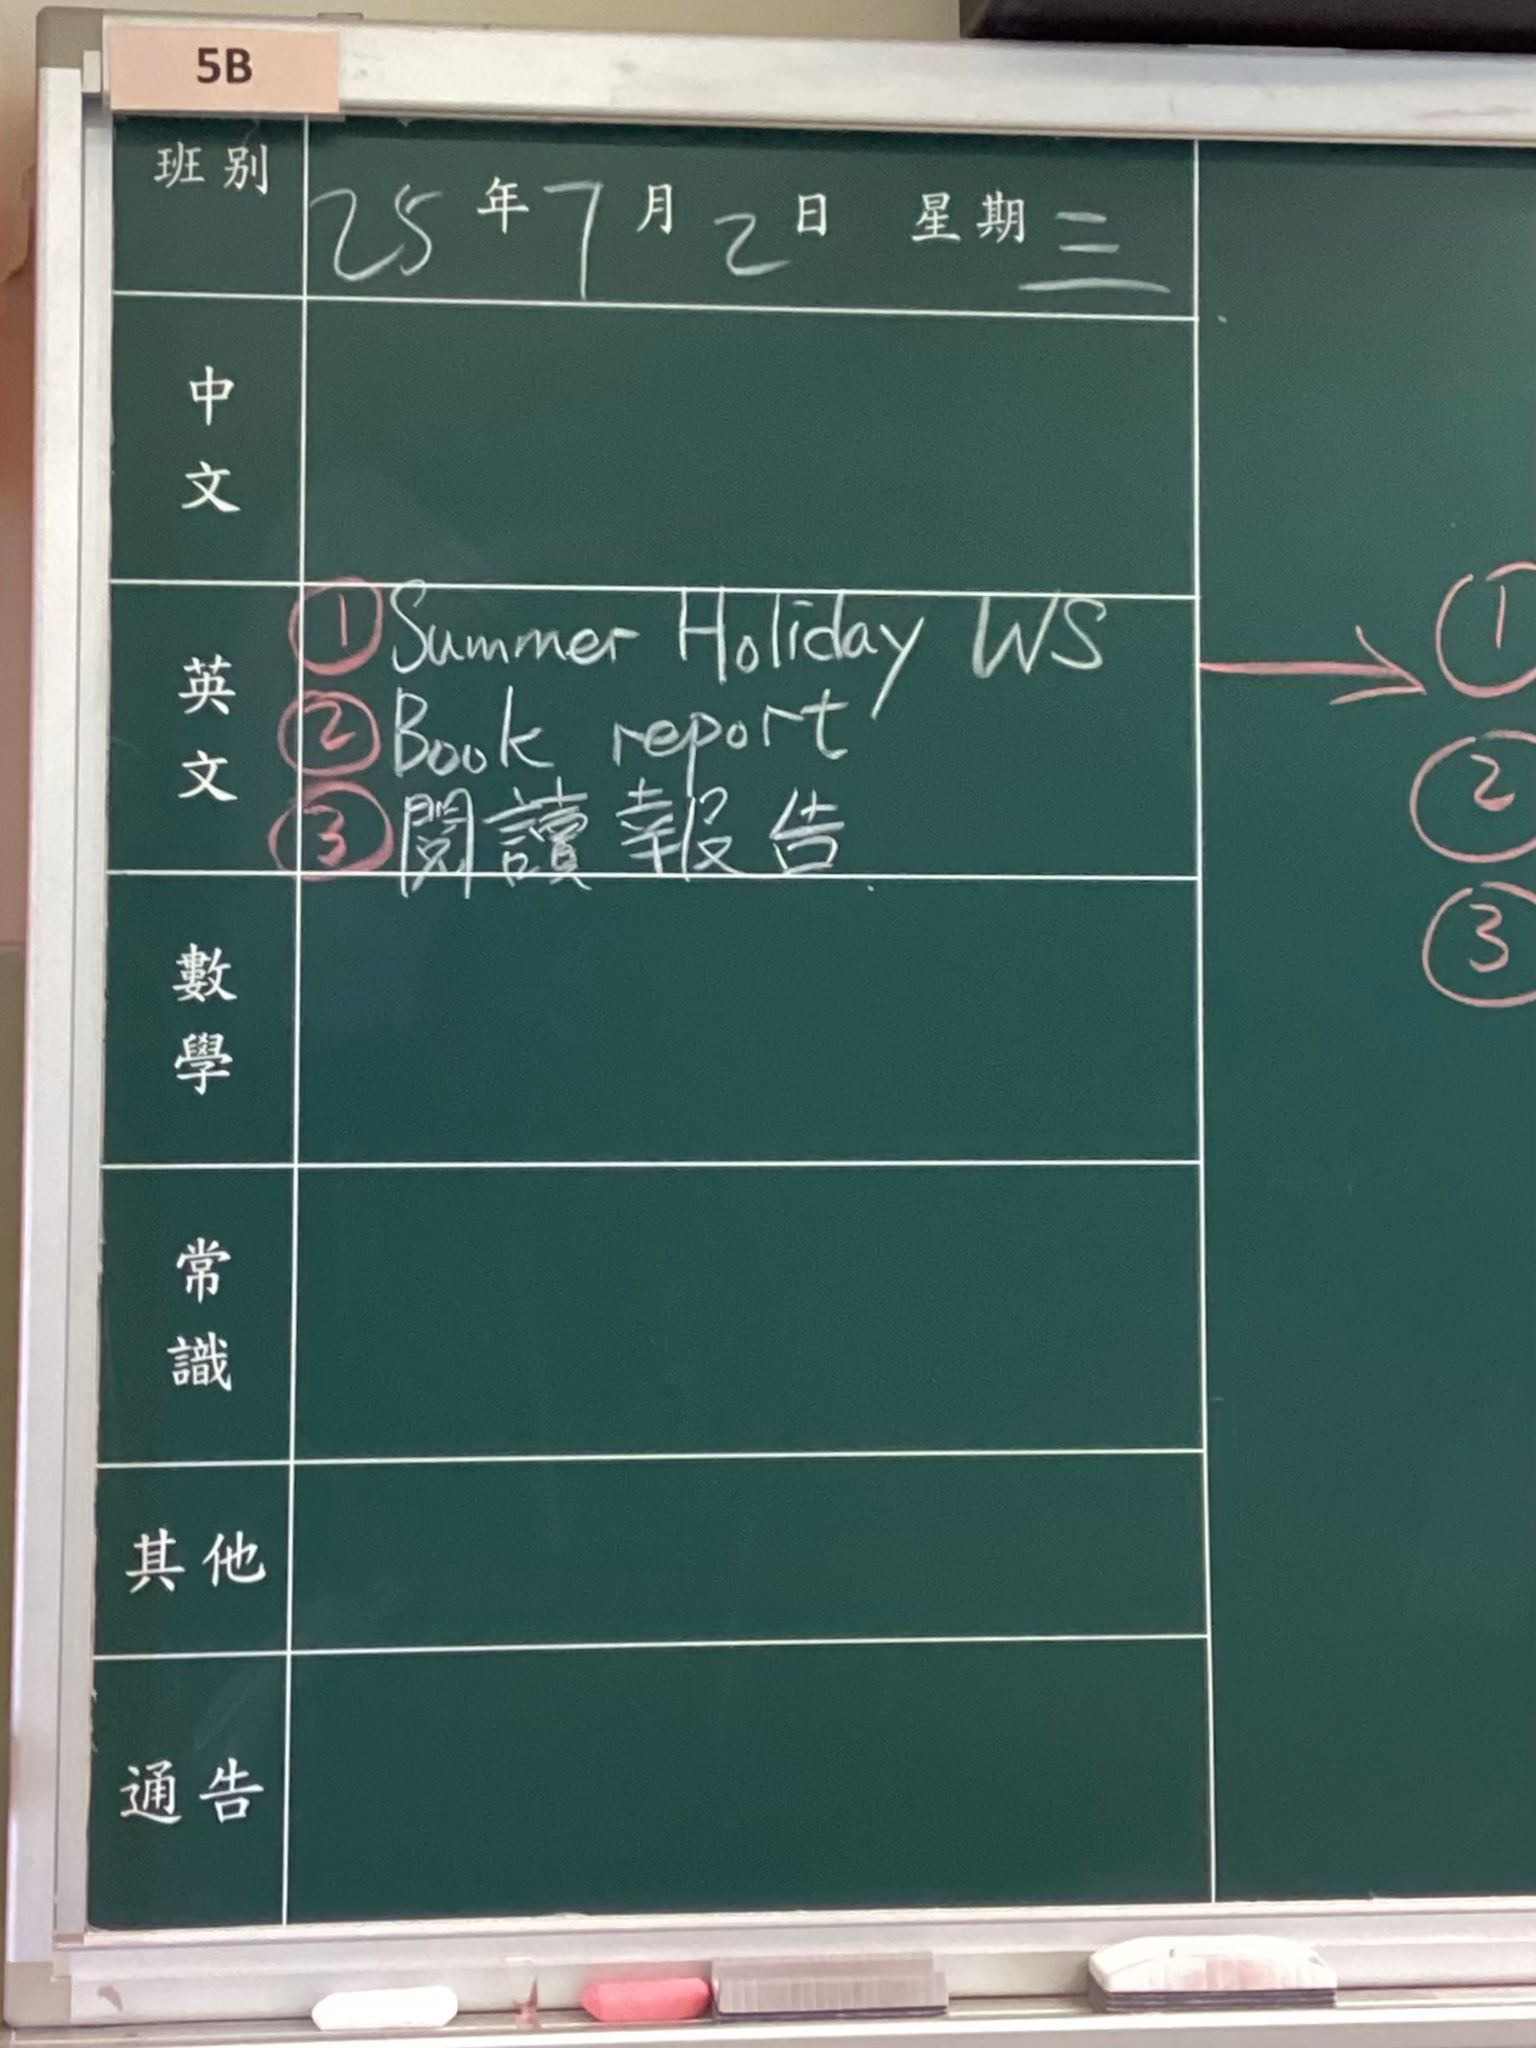 5B
班别 25年7月2日 星期三
中文
英文
① Summer Holiday WS
② Book report
③ 閱讀報告
數學
常識
其他
通告
①
②
③